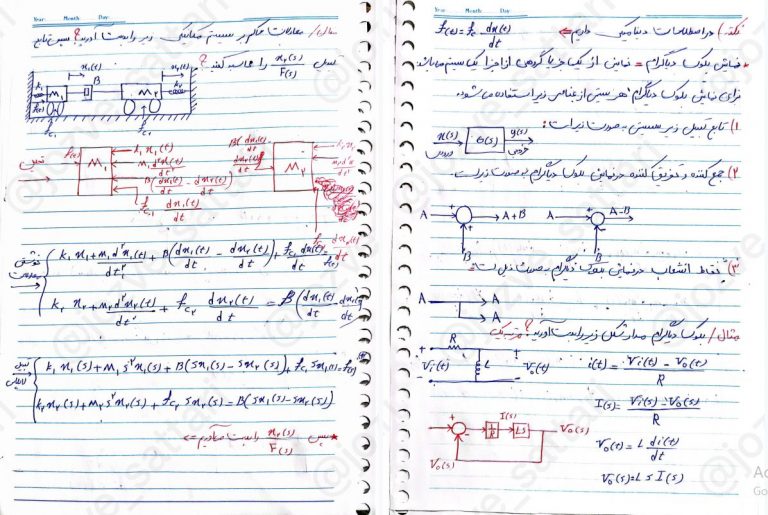 Year: Month: Day:
مثال/ معادلات حاکم بر سیستم مکانیکی زیر را بدست آورید؟ سپس تابع
تبدیل x₂(s)/F(s) را محاسبه کنید؟
x₁(t) x₂(t)
k₁ M₁ B M₂ k₂
f(t)
fc₁ fc₂
f(t) M₁ k₁x₁(t)
M₁d²x₁(t)/dt²
B(dx₁(t)/dt - dx₂(t)/dt)
fc₁ dx₁(t)/dt
M₂
k₁x₁ + M₁d²x₁(t)/dt² + B(dx₁(t)/dt - dx₂(t)/dt) + fc₁ dx₁(t)/dt = f(t)
k₂x₂ + M₂d²x₂(t)/dt² + fc₂ dx₂(t)/dt = B(dx₁(t)/dt - dx₂(t)/dt)
k₁x₁(s) + M₁s²x₁(s) + B(sx₁(s) - sx₂(s)) + fc₁sx₁(s) = f(s)
k₂x₂(s) + M₂s²x₂(s) + fc₂sx₂(s) = B(sx₁(s) - sx₂(s))
*پس x₂(s)/F(s) را بدست می‌آوریم =>
Year: Month: Day:
نکته) در اصطکاک دینامیکی داریم => f(t) = fc dx(t)/dt
* نمایش بلوک دیاگرام = نمایش از یک جز یا گروهی از اجزا یک سیستم می‌باشد
برای نمایش بلوک دیاگرام هر سیستم از عناصر زیر استفاده می‌شود.
۱) تابع تبدیل زیر سیستم به صورت زیر است:
x(s) G(s) y(s)
ورودی خروجی
۲) جمع کننده و تفریق کننده در نمایش بلوک دیاگرام به صورت زیر است.
A + A+B A + A-B
+ -
B B
۳) نقاط انشعاب در نمایش بلوک دیاگرام به صورت ذیل است:
A A
A
مثال/ بلوک دیاگرام مدار شکل زیر را بدست آورید؟
R
+ +
Vi(t) L Vo(t) i(t) = Vi(t) - Vo(t)/R
- -
I(s) = Vi(s) - Vo(s)/R
+ 1/R I(s) Ls Vo(s)
-
Vo(s)
Vo(t) = L di(t)/dt
Vo(s) = L s I(s)
@jozve_sattari